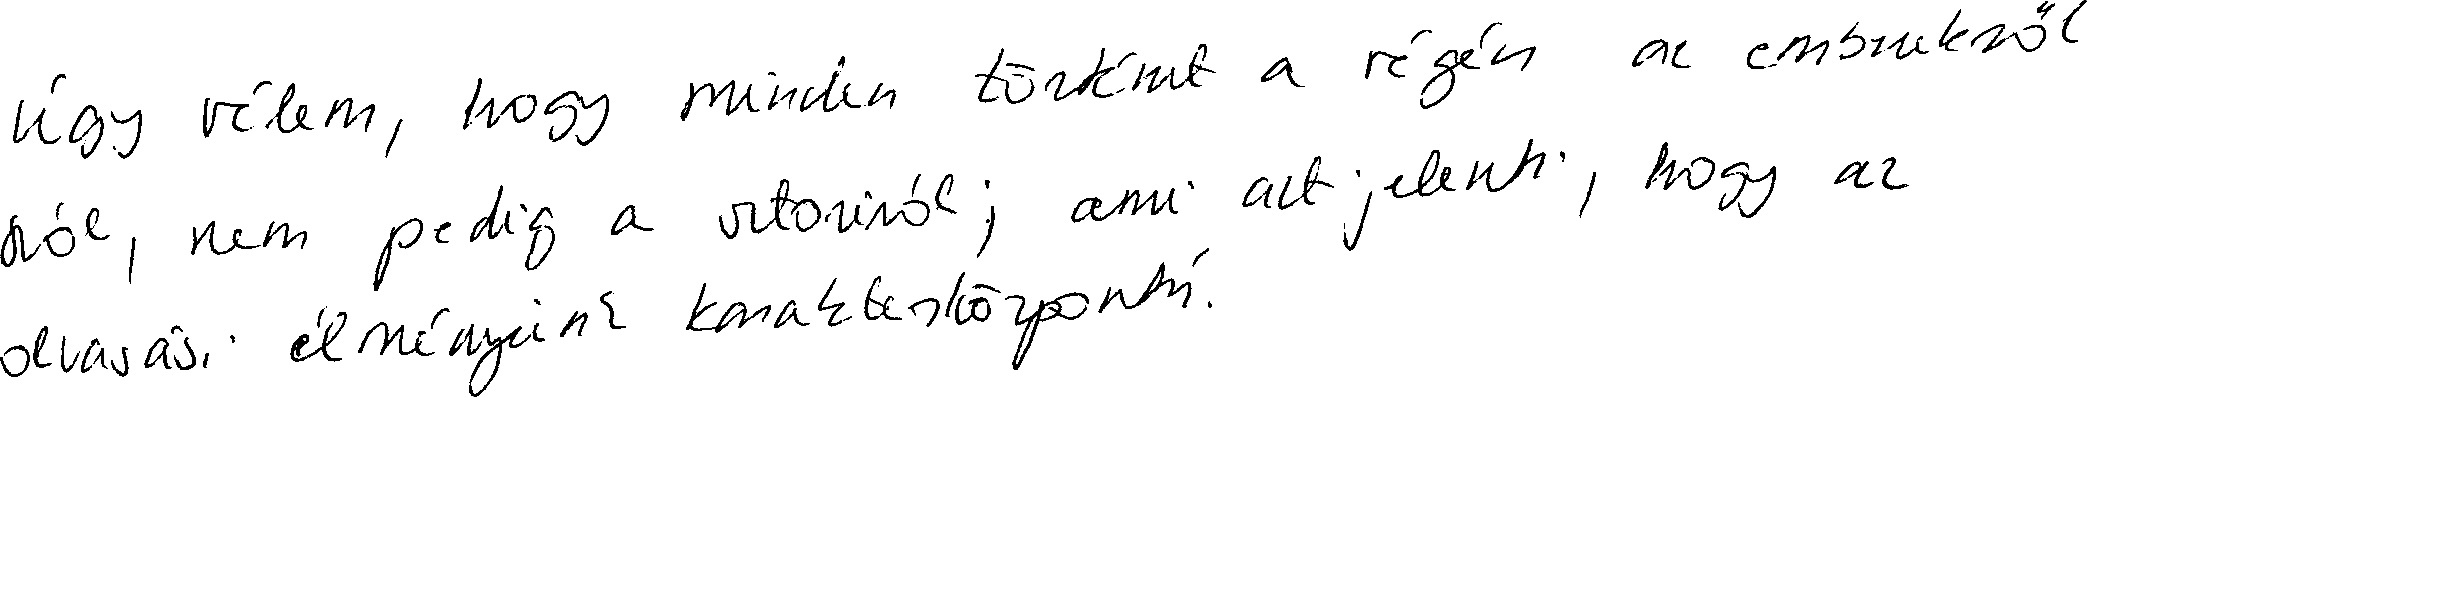 Úgy vélem, hogy minden történet a végén az emberekről
szól, nem pedig a sztoriról; ami azt jelenti, hogy az
olvasási élményeink karakterközpontú.